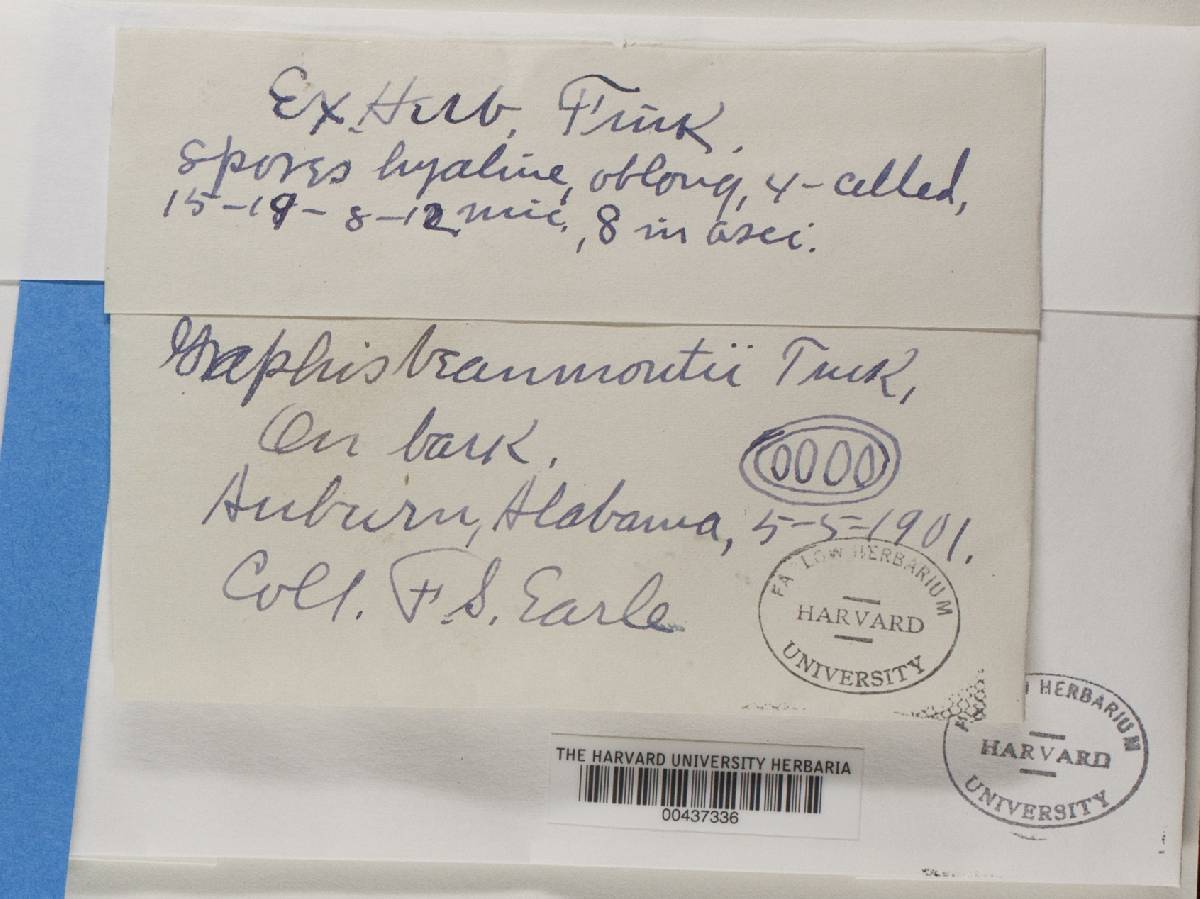 Ex. Herb. Fink.
Spores hyaline, oblong, 4-celled,
15-19-8-12 mic., 8 in asci.
Graphis beaumontii Tuck.
On bark.
Auburn, Alabama, 5-5-1901.
Coll. F. S. Earle
FA LOW HERBARIUM
HARVARD
UNIVERSITY
HERBARIUM
HARVARD
UNIVERSITY
THE HARVARD UNIVERSITY HERBARIA
00437336